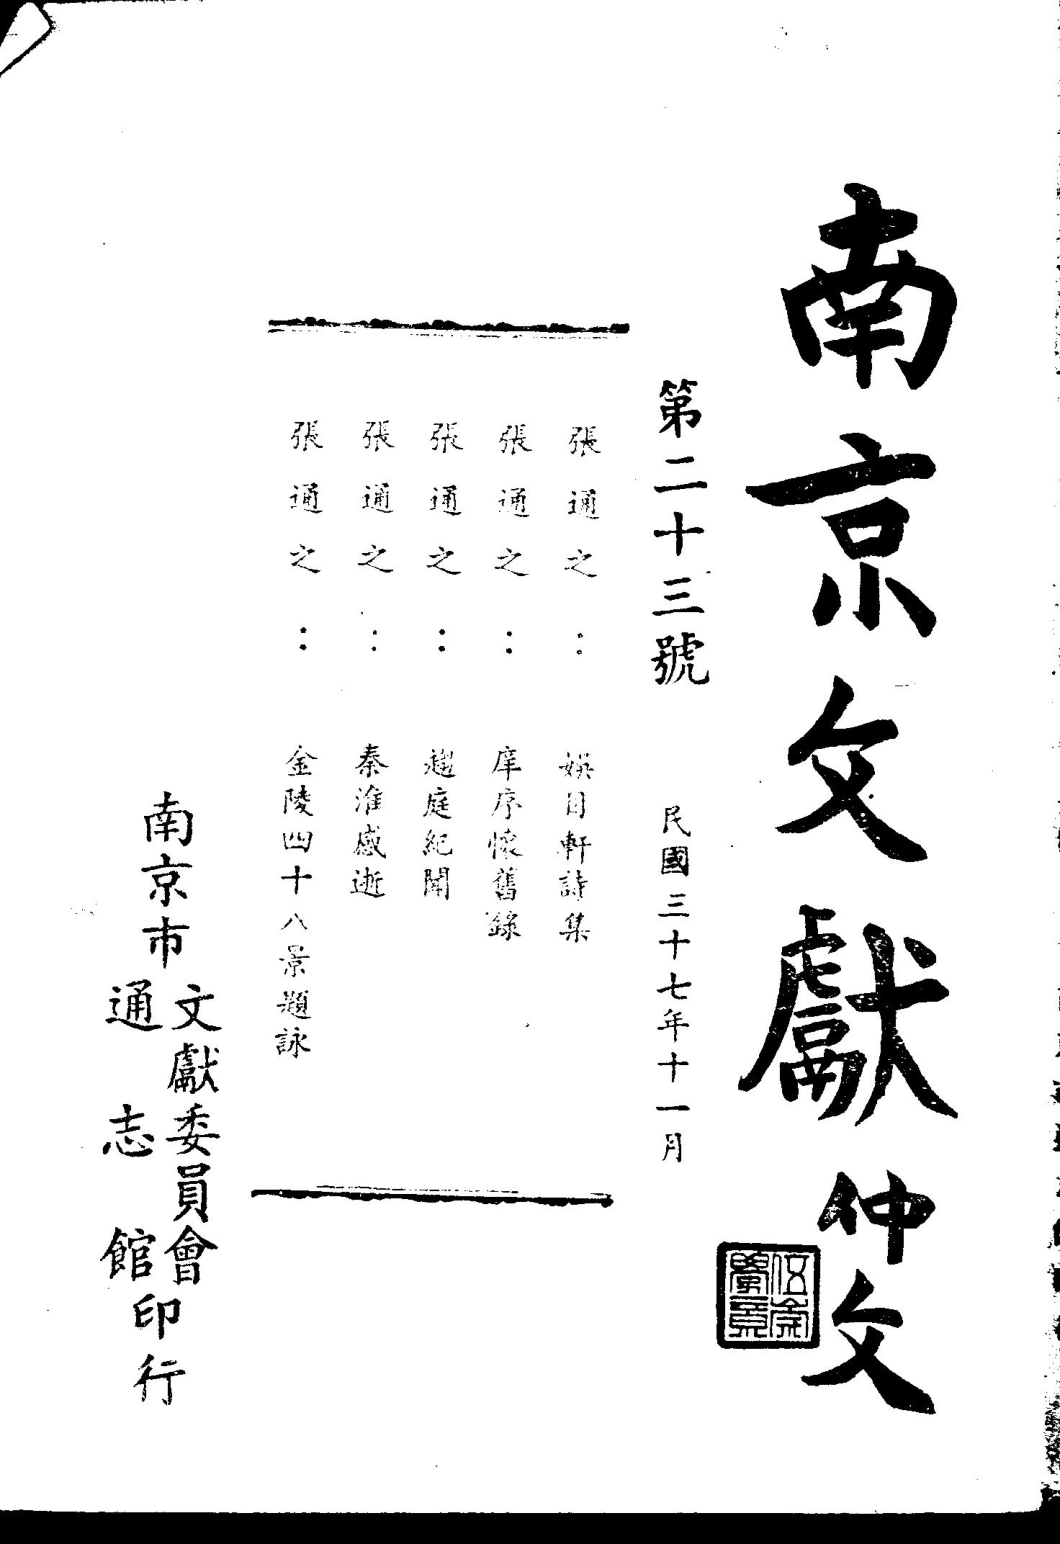 南京文獻
仲文
第二十三號
民國三十七年十一月
張通之：娛目軒詩集
張通之：庠序懷舊錄
張通之：趨庭紀聞
張通之：秦淮感逝
張通之：金陵四十八景題詠
南京市
文獻委員會
通志館
印行